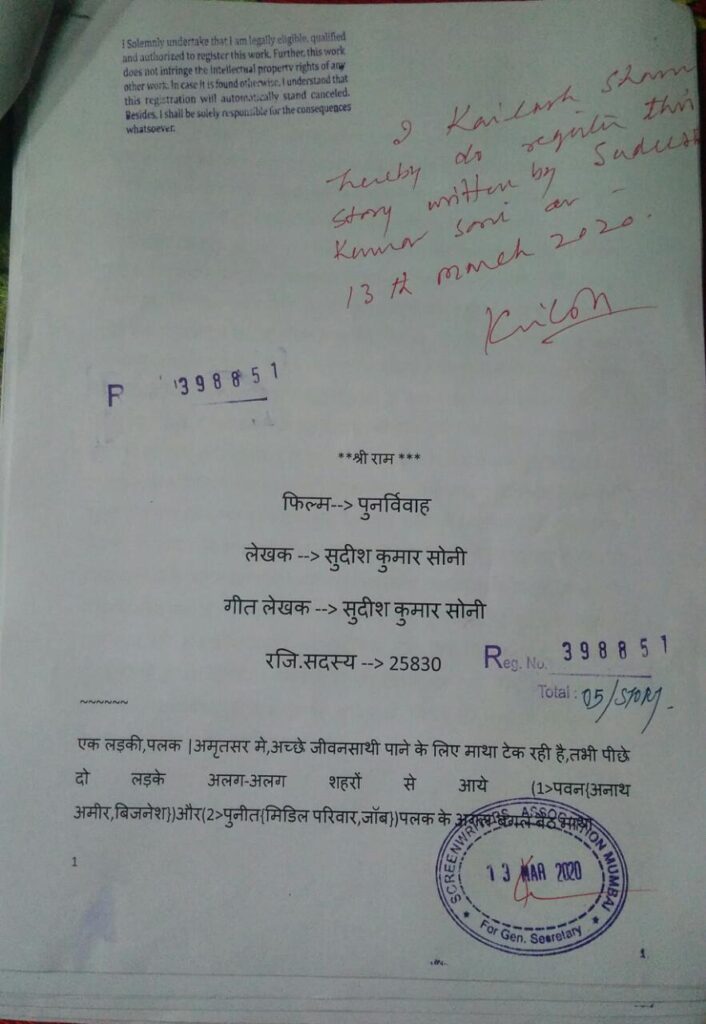 I Solemnly undertake that I am legally eligible, qualified
and authorized to register this work. Further, this work
does not infringe the intellectual property rights of any
other work. In case it is found otherwise, I understand that
this registration will automatically stand canceled.
Besides, I shall be solely responsible for the consequences
whatsoever.
I Kailash Sharm
hereby do register this
story written by Sudeesh
Kumar Soni on -
13 th march 2020.
R 398851
**श्री राम ***
फिल्म--> पुनर्विवाह
लेखक --> सुदीश कुमार सोनी
गीत लेखक --> सुदीश कुमार सोनी
रजि.सदस्य --> 25830
Reg. No. 398851
Total : 05/STORY.
~~~~~~
एक लड़की,पलक |अमृतसर मे,अच्छे जीवनसाथी पाने के लिए माथा टेक रही है,तभी पीछे
दो लड़के अलग-अलग शहरों से आये (1>पवन{अनाथ
अमीर,बिजनेश})और(2>पुनीत{मिडिल परिवार,जॉब})पलक के अगल बगल बैठ माथा
SCREENWRITERS ASSOCIATION MUMBAI
13 MAR 2020
For Gen. Secretary
1
1